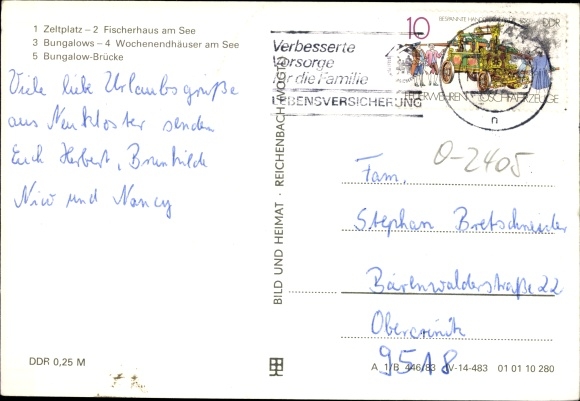 1 Zeltplatz – 2 Fischerhaus am See
3 Bungalows – 4 Wochenendhäuser am See
5 Bungalow-Brücke
Viele liebe Urlaubsgrüße
aus Neukloster senden
Euch Herbert, Brunhilde
Nico und Nancy
DDR 0,25 M
BILD UND HEIMAT · REICHENBACH (VOGTL)
Verbesserte
Vorsorge
für die Familie
LEBENSVERSICHERUNG
10
DDR
FEUERWEHREN LÖSCHFAHRZEUGE
n
O-2405.
Fam.
Stephan Bretschneider
Bärenwalderstraße 22
Obercrinitz
9518
A 1/B 446/83 IV-14-483 01 01 10 280